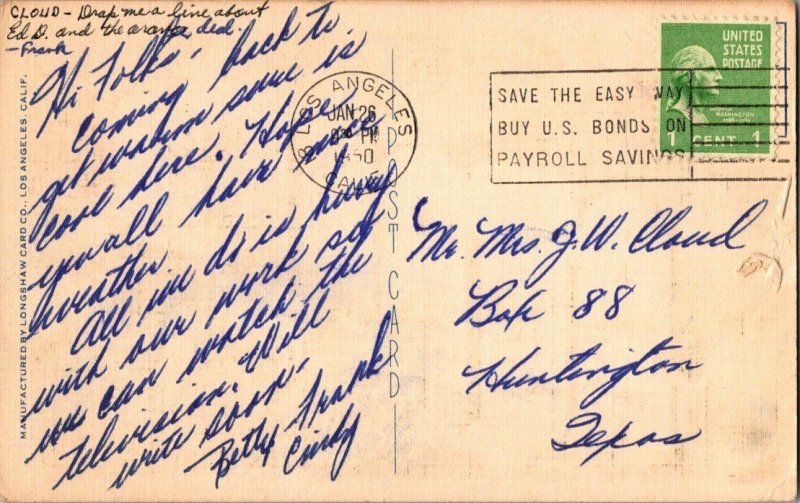 CLOUD - Drop me a line about
Ed D. and the oranges deal.
- Frank
Hi Folks,
Coming back to
get warm some is
cool here. Hope
you all have nice
weather.
All we do is hurry
with our work so
we can watch the
television. Will
write soon.
Betty Frank
Cindy
MANUFACTURED BY LONGSHAW CARD CO., LOS ANGELES, CALIF.
POST CARD
LOS ANGELES
8
JAN 26
PM
1950
CALIF.
SAVE THE EASY WAY
BUY U.S. BONDS ON
PAYROLL SAVINGS
UNITED
STATES
POSTAGE
GEORGE
WASHINGTON
CENT 1
Mr. Mrs. J. W. Cloud
Box 88
Huntington
Texas